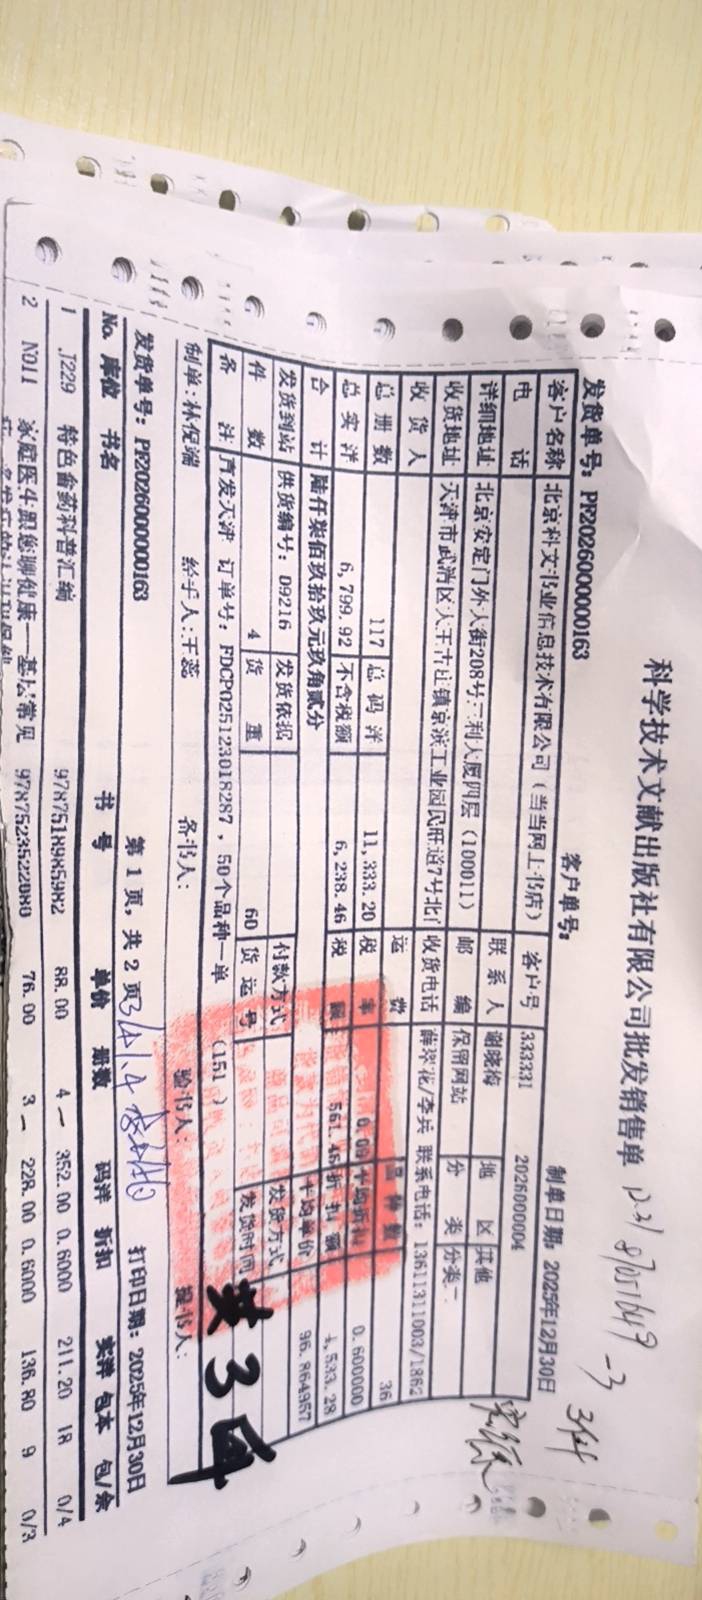 科学技术文献出版社有限公司批发销售单
12.31 87051649 -3
3件
发货单号: PF2026000000163 客户单号: 制单日期: 2025年12月30日
客户名称 北京科文书业信息技术有限公司(当当网上书店) 客户号 333331 2026000004
电 话 联系人 谢晓梅 地 区 其他
详细地址 北京安定门外大街208号三利大厦四层(100011) 邮 编 保留网站 分 类 分类二
收货地址 天津市武清区大王古庄镇京滨工业园民旺道7号北门 收货电话 薛翠花/李兵 联系电话: 13611311003/1862
收货人 运 费 品种数 36
总册数 117 总码洋 11,333.20 税 率 0.09 平均折扣 0.600000
总实洋 6,799.92 不含税额 6,238.46 税 额 561.46 折扣额 4,533.28
合 计 陆仟柒佰玖拾玖元玖角贰分 平均单价 96.864957
发货到站 供货编号: D9216 发货依据 付款方式 发货方式
件 数 4 货 重 60 货运号 发货时间
备 注 直发天津 订单号: FDCP025123018287, 50个品种一单 (151 )
共3件
制单:林倪端 经手人:王蕊 备书人: 验书人: 提书人:
发货单号: PF2026000000163 第 1 页, 共 2 页 打印日期: 2025年12月30日
No. 库位 书名 书 号 单价 册数 码洋 折扣 实洋 包本 包/余
1 J229 特色畲药科普汇编 9787518985982 88.00 4 352.00 0.6000 211.20 18 0/4
2 N011 家庭医生跟您聊健康—基层常见 9787523522080 76.00 3 228.00 0.6000 136.80 9 0/3